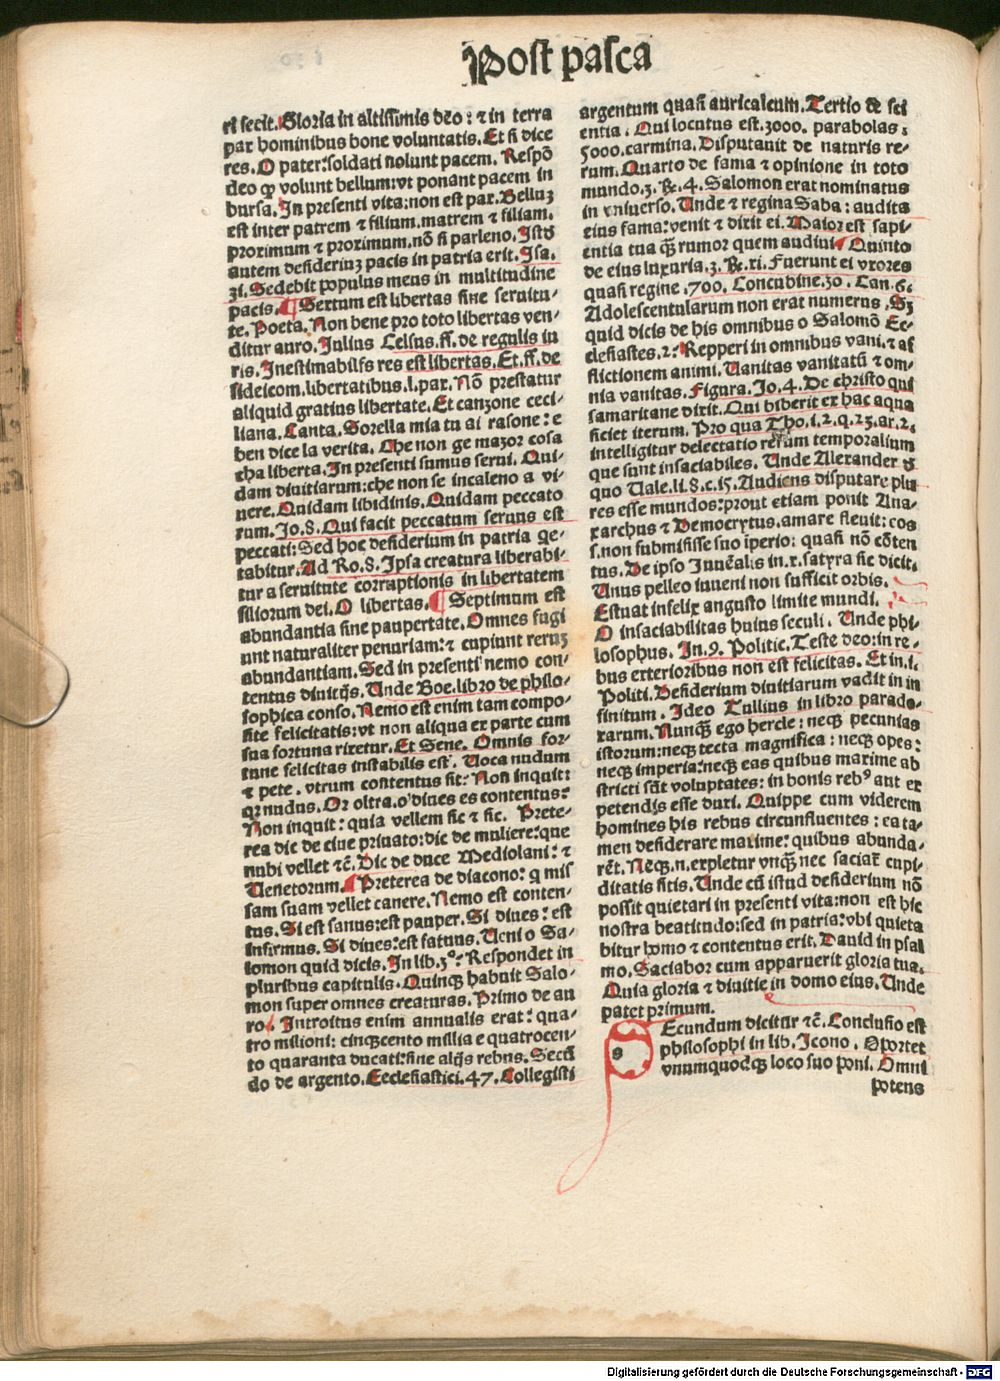 Post pasca
ri fecit. Gloria in altissimis deo: ⁊ in terra
pax hominibus bone voluntatis. Et si dice
res. O pater: soldati nolunt pacem. Respõ
deo ꝙ volunt bellum: vt ponant pacem in
bursa. In presenti vita: non est pax. Belluʒ
est inter patrem ⁊ filium. matrem ⁊ filiam.
proximum ⁊ proximum. nõ si parleno. Istd
autem desideriuʒ pacis in patria erit. Isa.
xi. Sedebit populus meus in multitudine
pacis. ¶ Sextum est libertas sine seruitu-
te. Poeta. Non bene pro toto libertas ven-
ditur auro. Julius Celsus. ff. de regulis iu
ris. Inestimabilis res est libertas. Et. ff. de
fideicom. libertatibus. l. par. Nõ prestatur
aliquid gratius libertate. Et canzone ceci-
liana. Canta. Sorella mia tu ai rasone: e
ben dice la verita. Che non ge mazor cosa
cha liberta. In presenti sumus serui. Qui-
dam diuitiarum: che non se incaleno a vi-
uere. Quidam libidinis. Quidam peccato
rum. Jo. 8. Qui facit peccatum seruus est
peccati: Sed hoc desiderium in patria ge-
tabitur. Ad Ro. 8. Ipsa creatura liberabi-
tur a seruitute corruptionis in libertatem
filiorum dei. O libertas. ¶ Septimum est
abundantia sine paupertate. Omnes fugi
unt naturaliter penuriam: ⁊ cupiunt reruʒ
abundantiam. Sed in presenti nemo con-
tentus diuitijs. Unde Boe. libro de philo-
sophica conso. Nemo est enim tam compo-
site felicitatis: vt non aliqua ex parte cum
sua fortuna rixetur. Et Sene. Omnis for-
tune felicitas instabilis est. Uoca nudum
⁊ pete. vtrum contentus sit: Non inquit:
qꝛ nudus. Or oltra. o diues es contentus?
Non inquit: quia vellem sic ⁊ sic. Prete-
rea dic de ciue priuato: dic de muliere: que
nubi vellet ⁊c̃. Dic de duce Mediolani: ⁊
Uenetorum. ¶ Preterea de diacono: q mis
sam suam vellet canere. Nemo est conten-
tus. Si est sanus: est pauper. Si diues: est
infirmus. Si diues: est fatuus. Ueni o Sa-
lomon quid dicis. In lib. 3º. Respondet in
pluribus capitulis. Quinqꝫ habuit Salo-
mon super omnes creaturas. Primo de au
ro. Introitus enim annualis erat: qua-
tro milioni: cinqcento millia e quatrocen-
to quaranta ducati: sine alijs rebus. Secũ
do de argento. Ecclesiastici. 47. Collegisti
argentum quasi auricalcum. Tertio de sci
entia. Qui locutus est. 3000. parabolas:
5000. carmina. Disputauit de naturis re-
rum. Quarto de fama ⁊ opinione in toto
mundo. 3. Re. 4. Salomon erat nominatus
in vniuerso. Unde ⁊ regina Saba: audita
eius fama: venit ⁊ dixit ei. Maior est sapi-
entia tua qꝫ rumor quem audiui. Quinto
de eius luxuria. 3. Re. xi. Fuerunt ei vxores
quasi regine. 700. Concubine. 30. Can. 6.
Adolescentularum non erat numerus. Sʒ
quid dicis de his omnibus o Salomõ Ec-
clesiastes. 2. Repperi in omnibus vani. ⁊ af
flictionem animi. Uanitas vanitatũ ⁊ om-
nia vanitas. Figura. Jo. 4. De christo qui
samaritane dixit. Qui biberit ex hac aqua
siciet iterum. Pro qua Tho. i. 2. q. 23. ar. 2.
intelligitur delectatio rerum temporalium
que sunt insaciabiles. Unde Alexander d
quo Uale. li. 8. c. 15. Audiens disputare plu
res esse mundos: prout etiam ponit Ana-
xarchus ⁊ Democrytus. amare fleuit: eos
s. non submisisse suo ĩperio: quasi nõ cõten
tus. De ipso Juuẽalis in. x. satyra sic dicit.
Unus pelleo iuueni non sufficit orbis.
Estuat infelix angusto limite mundi.
O insaciabilitas huius seculi. Unde phi-
losophus. In. 9. Politic. Teste deo: in re-
bus exterioribus non est felicitas. Et in. i.
Politi. Desiderium diuitiarum vadit in in
finitum. Ideo Tullius in libro parado-
xarum. Nunqꝫ ego hercle: neqꝫ pecunias
istorum: neqꝫ tecta magnifica: neqꝫ opes:
neqꝫ imperia: neqꝫ eas quibus maxime ab
stricti sũt voluptates: in bonis rebꝰ aut ex
petendis esse duxi. Quippe cum viderem
homines his rebus circunfluentes: ea ta-
men desiderare maxime: quibus abunda-
rẽt. Neqꝫ. n. expletur vnqꝫ nec saciaĩ cupi-
ditatis sitis. Unde cũ istud desiderium nõ
possit quietari in presenti vita: non est hic
nostra beatitudo: sed in patria: vbi quieta
bitur homo ⁊ contentus erit. Dauid in psal
mo. Saciabor cum apparuerit gloria tua.
Quia gloria ⁊ diuitie in domo eius. Unde
patet primum.
s Ecundum dicitur ⁊c̃. Conclusio est
philosophi in lib. Icono. Oportet
vnumquodqꝫ loco suo poni. Omni
potens
Digitalisierung gefördert durch die Deutsche Forschungsgemeinschaft - DFG